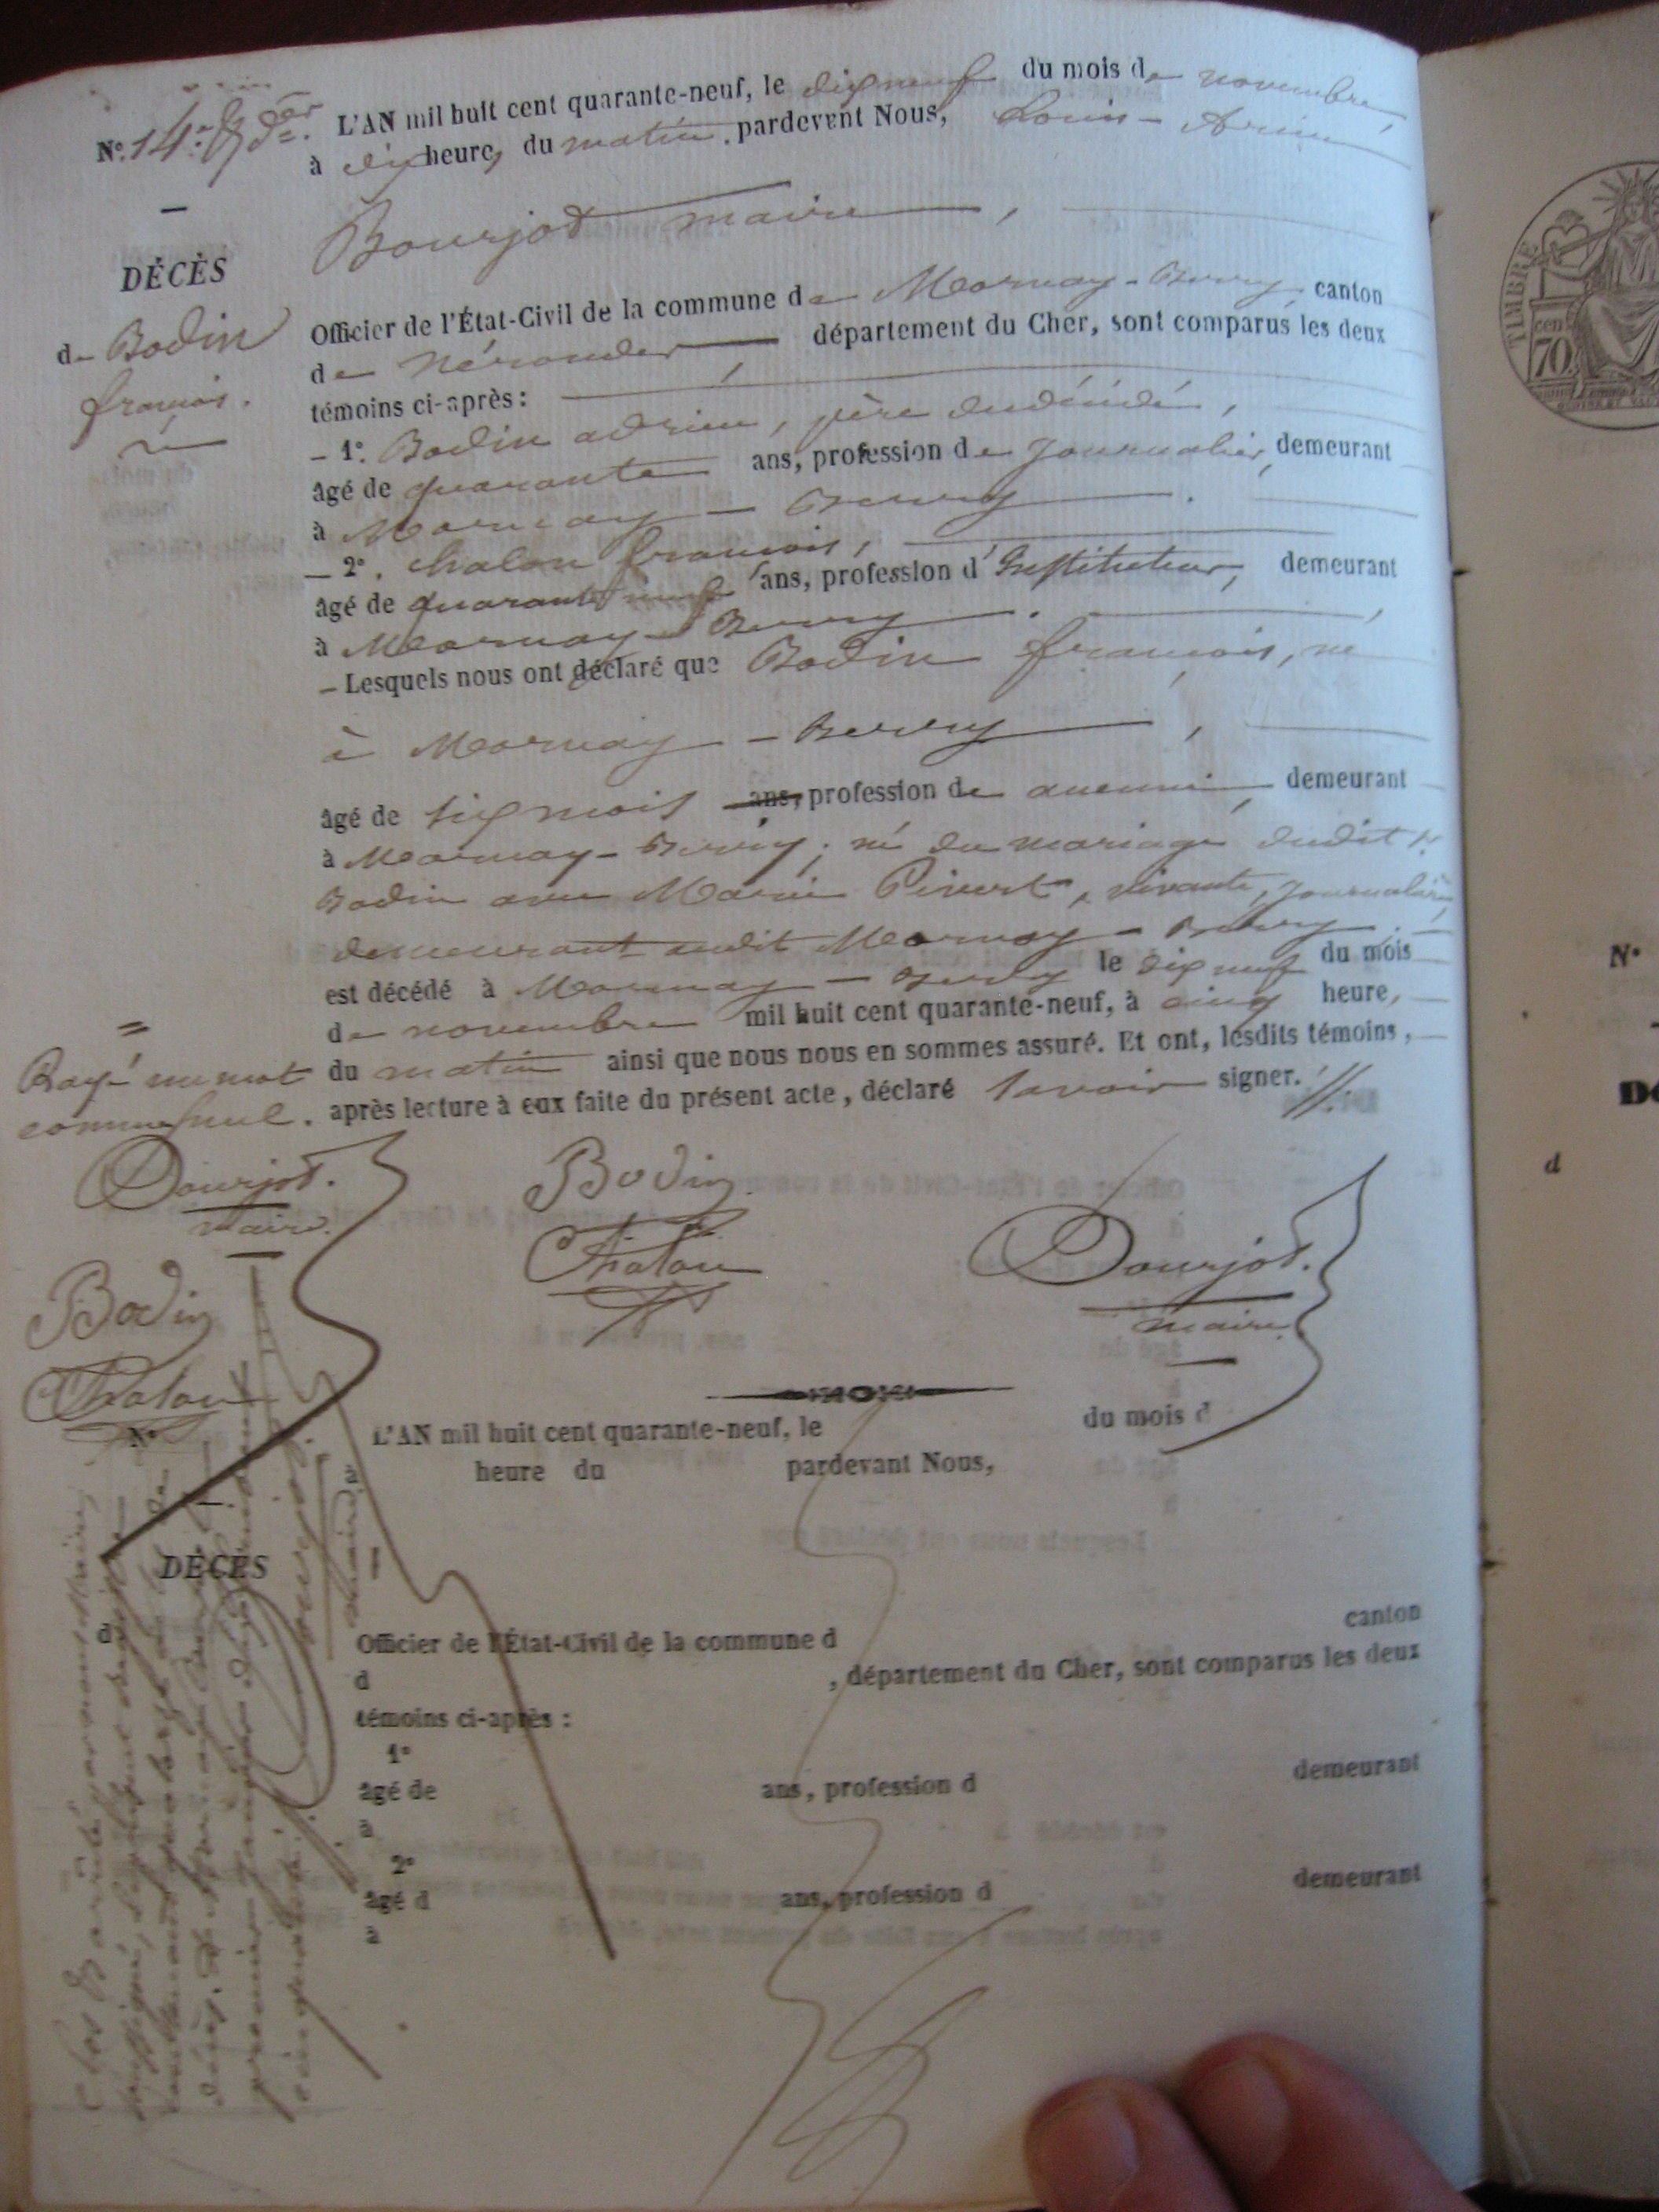 N.° 14 & der.
DÉCÈS
de Bodin
françois.
L'AN mil huit cent quarante-neuf, le dix neuf du mois de novembre,
à dix heures du matin, pardevant Nous, Louis-
Bourjot maire,
Officier de l'État-Civil de la commune de Mornay-Berry, canton
de Nérondes, département du Cher, sont comparus les deux
témoins ci-après:
- 1°. Bodin adrien, père dudécédé,
âgé de quarante ans, profession de Journalier, demeurant
à Mornay-Berry.
- 2°. chalou françois,
âgé de quarante neuf ans, profession d'Instituteur, demeurant
à Mornay-Berry.
- Lesquels nous ont déclaré que Bodin françois, né
à Mornay-Berry,
âgé de six mois ans, profession de aucune, demeurant
à Mornay-Berry; né du mariage dudit
Bodin avec Marie Pivert, vivante, journalière,
demeurant audit Mornay-Berry.
est décédé à Mornay-Berry le dix neuf du mois
de novembre mil huit cent quarante-neuf, à cinq heures,
du matin ainsi que nous nous en sommes assuré. Et ont, lesdits témoins,
après lecture à eux faite du présent acte, déclaré savoir signer. //.
Rayé un mot
comme nul.
Bourjot.
maire.
Bodin
Chalou
Bodin
Chalou
Bourjot.
maire.
N°
DÉCÈS
d
L'AN mil huit cent quarante-neuf, le du mois d
à heure du pardevant Nous,
Officier de l'État-Civil de la commune d canton
d , département du Cher, sont comparus les deux
témoins ci-après :
1°
âgé de ans, profession d demeurant
à
2°
âgé d ans, profession d demeurant
à
TIMBRE
cen
70
N°
d